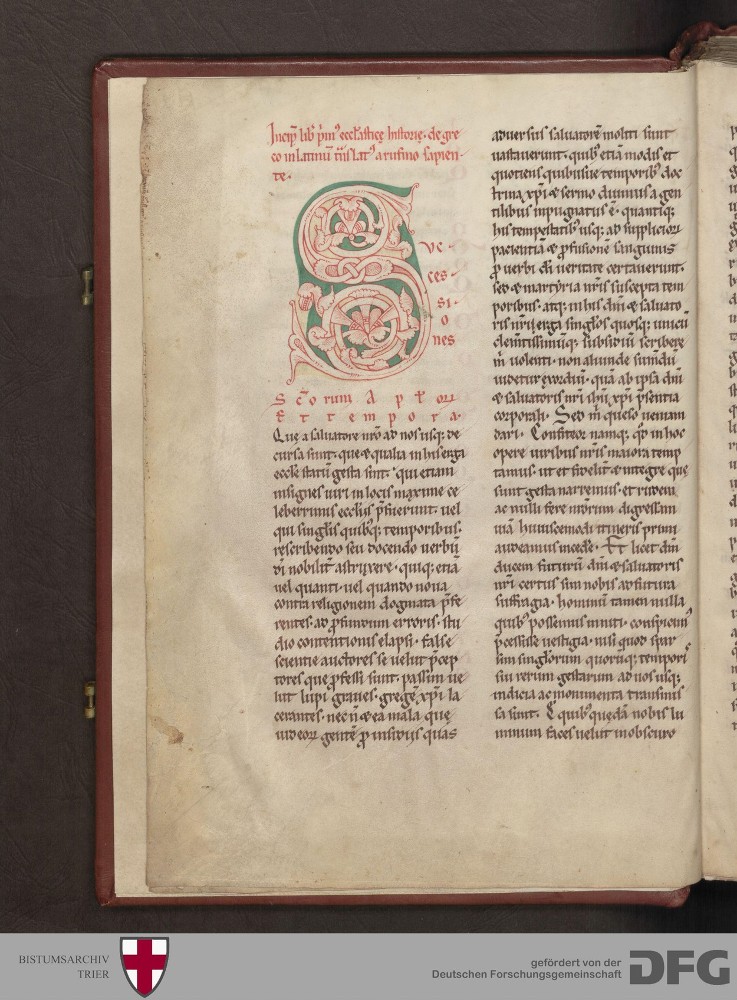 Incip̄ lib̄ p̄m' eccl'asticę historię. de gre
co in latinū t̄nslat' a rufino sapien-
te.
SVC-
ces-
si-
o
nes
Sc̄orum Apl'oꝝ
Et tempora.
Quę a salvatore nr̄o ad nos usq; de
cursa sunt. que & qualia in his erga
eccl'e statū gesta sint. qui etiam
insignes viri in locis maxime ce
leberrimis eccl'iis p̄fuerunt. vel
qui singl'is quibq; temporibus.
rescribendo seu docendo verbū
di nobilit̄ astruxere. quiq; etiā
vel quanti. vel quando nova
contra religionem dogmata p̄fe
rentes. ad profundum erroris. stu
dio contentionis elapsi. false
scientie auctores se velut p̄cep
tores que ꝓfessi sunt. passim ve
lut lupi graves. gregē xp̄i la
cerantes. nec n̄ & ea mala quę
iudeoꝝ gentē ꝓ insidiis quas
adversus salvatorē moliti sunt
vastaverunt. quib' etiā modis et
quotiens quibusve temporib' doc
trina xp̄i & sermo divinus a gen
tilibus inpugnatus ē. quantiq;
his tempestatib' usq; ad suppliciorū
pacientiā & ꝓfusionē sanguinis
ꝓ verbi di veritate certaverunt.
sed & martyria nr̄is suscepta tem
poribus. atq; in his dn̄i & salvato
ris nr̄i erga singl'os quosq; unicū
clem̄tissimūq; subsidiū scribere
m̄ volenti. non aliunde sum̄dū
videtur exordiū. quā ab ipsa dn̄i
& salvatoris nr̄i ih̄u xp̄i p̄sentia
corporali. Sed m̄ queso veniam
dari. Confiteor namq; qd̄ in hoc
opere viribus nr̄is maiora temp
tamus. ut et fidelit̄ & integre quę
sunt gesta narremus. et rudem
ac nulli fere nr̄orum digressam
viā huiuscemodi itineris primi
audeamus incede. Et licet dm̄
ducem futurū dn̄i & salvatoris
nr̄i certus sim nobis adfutura
suffragia. hominū tamen nulla
quib' possemus inniti. conspicim'
p̄cessisse vestigia. nisi quod spar
sim singl'orum quorūq; tempori'
sui rerum gestarum ad nos usq;
indicia ac monimenta transmis
sa sunt. E quib' quędā nobis lu
minum faces velut in obscuro
BISTUMSARCHIV
TRIER
gefördert von der
Deutschen Forschungsgemeinschaft
DFG